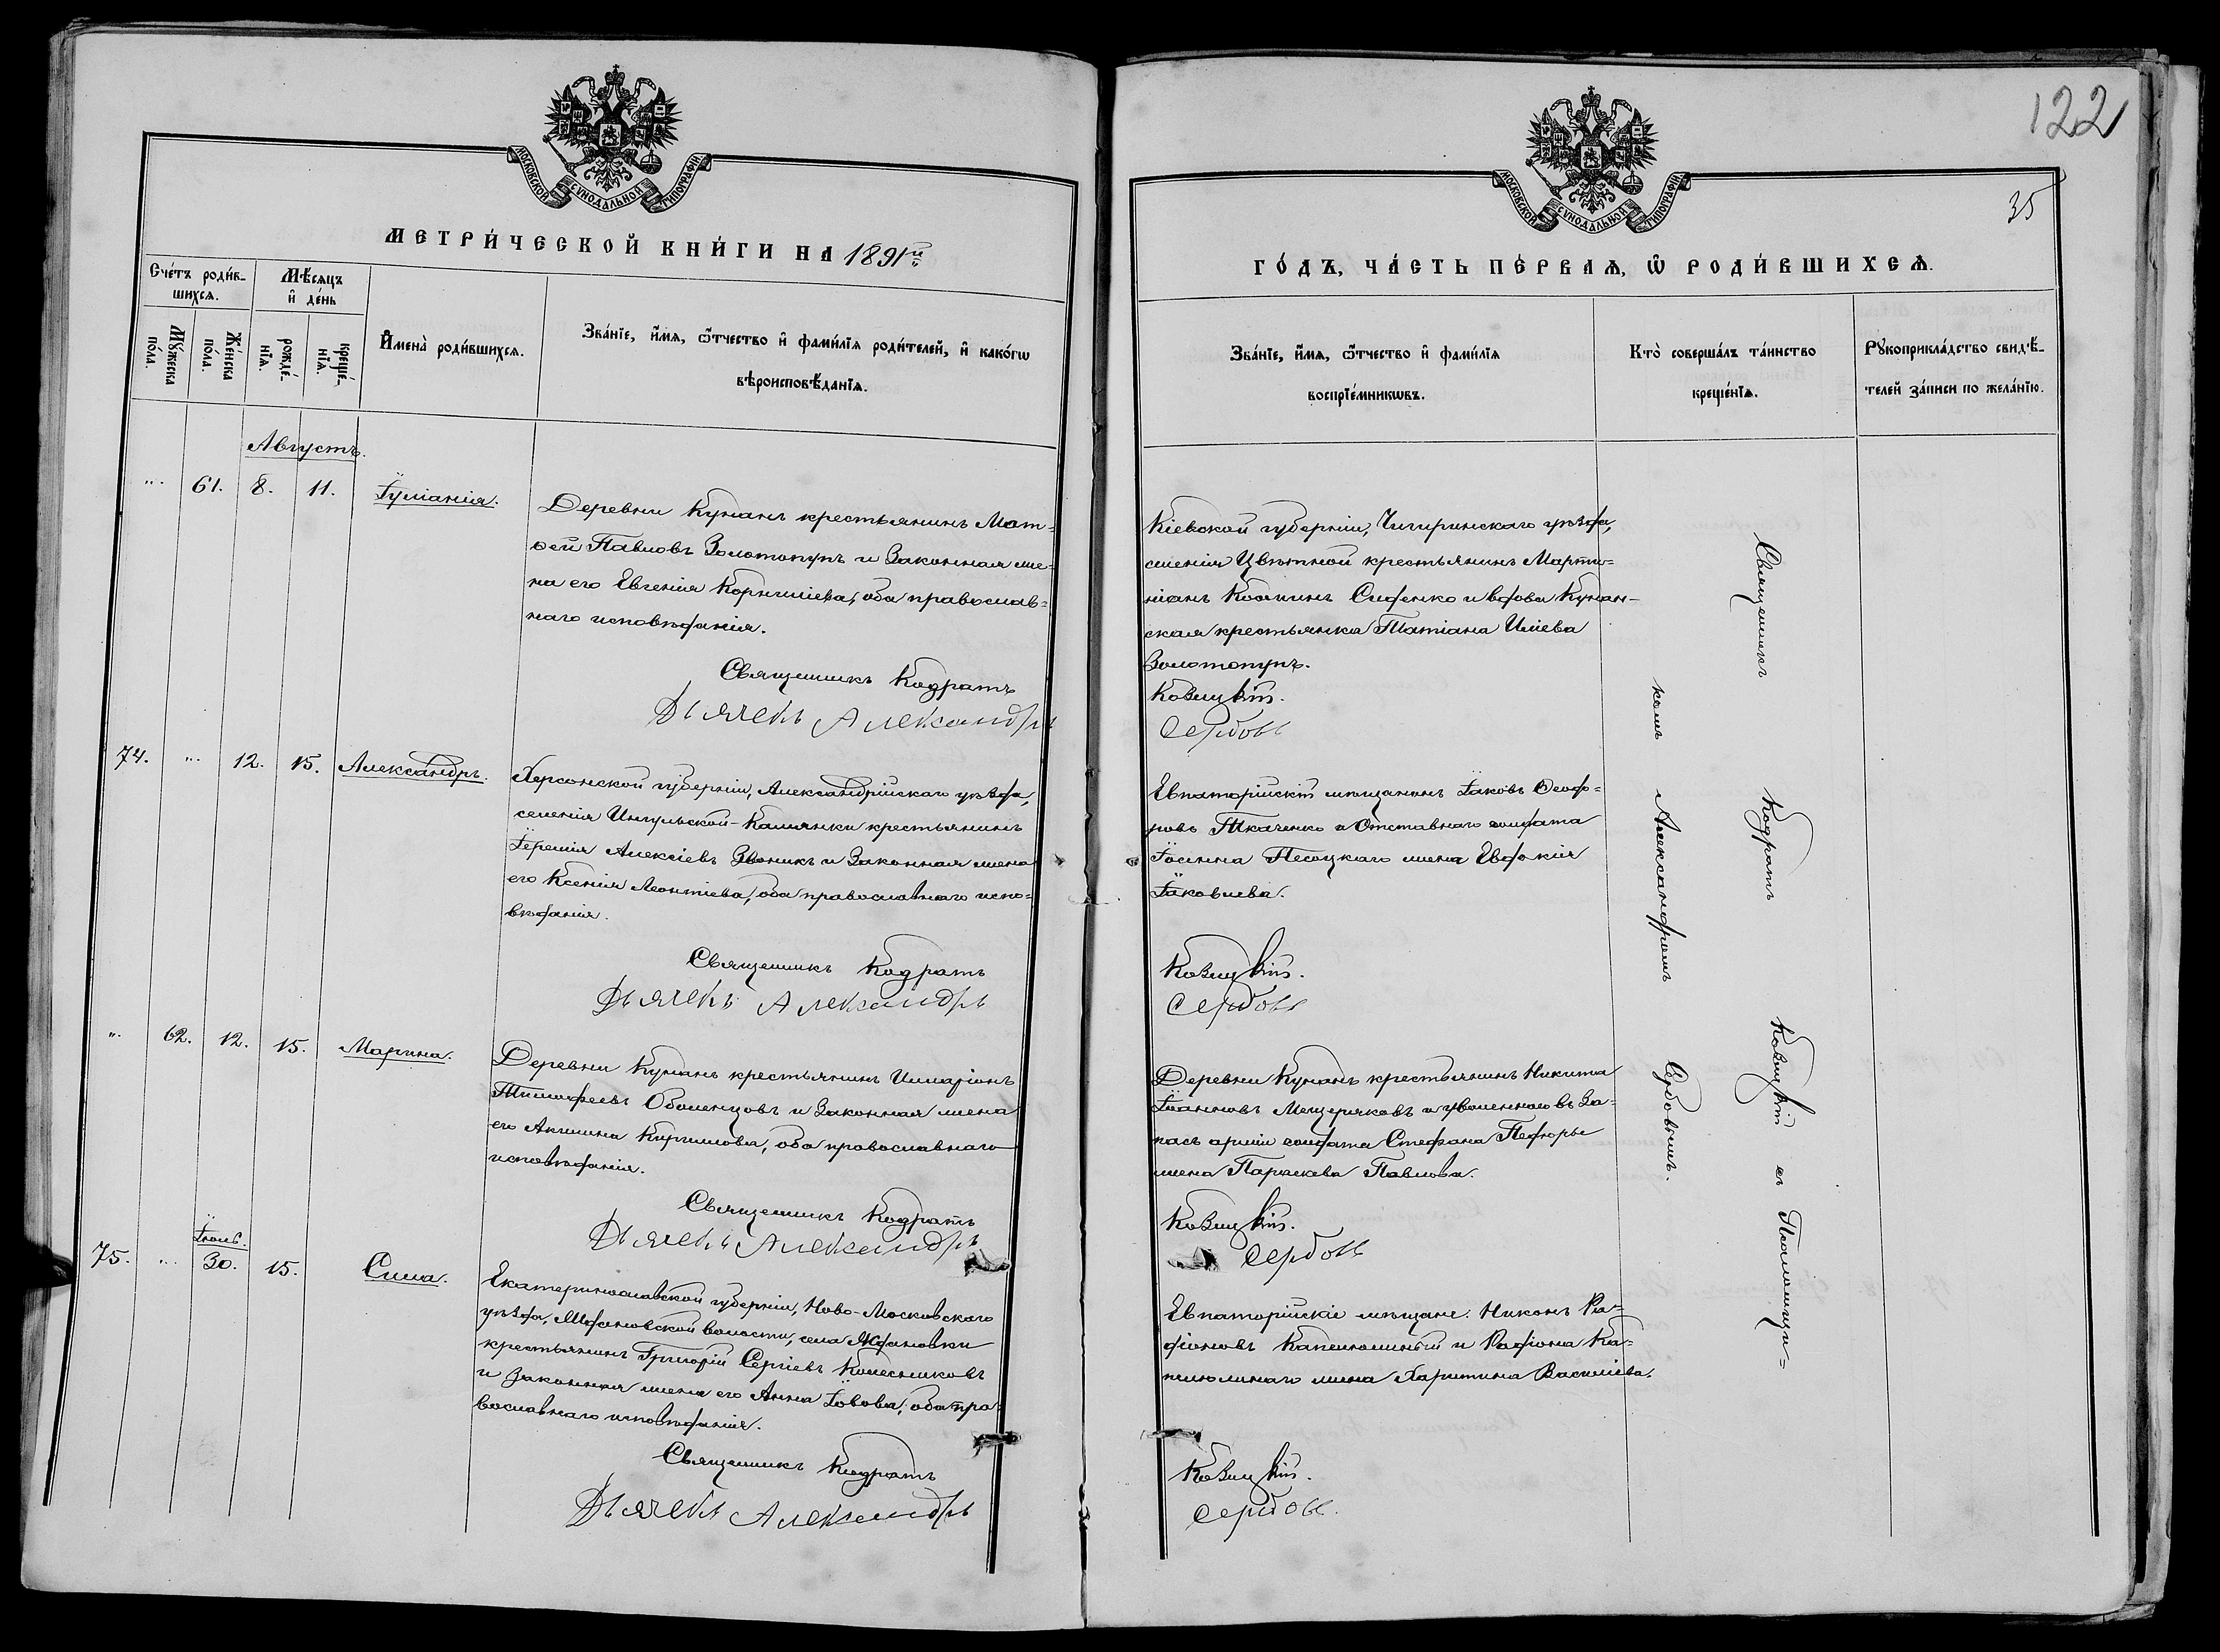 МОСКОВСКОЙ СѴНОДАЛЬНОЙ ТИПОГРАФІИ
МЕТРИ́ЧЕСКОЙ КНИ́ГИ НА 1891й
Сче́тъ роди́в-
шихсѧ.
Мѣ́сѧцъ
и҆ де́нь
Мꙋ́жеска
по́ла.
Же́нска
по́ла.
рожде́-
нїѧ.
креще́-
нїѧ.
И҆мена̀ роди́вшихсѧ.
Зва́нїе, и҆́мѧ, ѻ҆́тчество и҆ фами́лїѧ роди́телей, и҆ како́гѡ
вѣроисповѣ́данїѧ.
Августъ.
„ 61. 8. 11. Іуліанія.
Деревни Кунанъ крестьянинъ Мат-
ѳей Павловъ Золотопупъ и законная же-
на его Евгенія Корниліева, оба православ-
наго исповѣданія.
Священникъ Кодратъ
Дьячекъ Александръ
74. „ 12. 15. Александръ.
Херсонской губерніи, Александрійскаго уѣзда,
селенія Ингульской-Каменки крестьянинъ
Іеремія Алексіевъ Звоникъ и законная жена
его Ксенія Леонтіева, оба православнаго испо-
вѣданія.
Священникъ Кодратъ
Дьячекъ Александръ
„ 62. 12. 15. Марина.
Деревни Кунанъ крестьянинъ Илларіонъ
Тимофеевъ Оболенцовъ и законная жена
его Акилина Кириллова, оба православнаго
исповѣданія.
Священникъ Кодратъ
Дьячекъ Александръ
Іюль.
75. „ 30. 15. Сила.
Екатеринославской губерніи, Ново-Московскаго
уѣзда, Ждановской волости, села Ждановки
крестьянинъ Григорій Сергіевъ Колесниковъ
и законная жена его Анна Іовова, оба пра-
вославнаго исповѣданія.
Священникъ Кодратъ
Дьячекъ Александръ
122
35
МОСКОВСКОЙ СѴНОДАЛЬНОЙ ТИПОГРАФІИ
ГО́ДЪ, ЧА́СТЬ ПЕ́РВАѦ, Ѡ҆ РОДИ́ВШИХСѦ.
Зва́нїе, и҆́мѧ, ѻ҆́тчество и҆ фами́лїѧ
воспрїе́мникѡвъ.
Кто̀ соверша́лъ та́инство
креще́нїѧ.
Рꙋкоприкла́дство свидѣ́-
телей за́писи по жела́нїю.
Кіевской губерніи, Чигиринскаго уѣзда,
селенія Цвѣтной крестьянинъ Марти-
ніанъ Косминъ Сиденко и вдова Кунан-
ская крестьянка Татіана Иліева
Золотопупъ.
Козицкій.
Сербовъ
Евпаторійскій мѣщанинъ Іаковъ Ѳеодо-
ровъ Ткаченко и отставнаго солдата
Іосифа Песоцкаго жена Евдокія
Іаковлева.
Козицкій.
Сербовъ
Деревни Кунанъ крестьянинъ Никита
Іоанновъ Мещеряковъ и уволеннаго въ за-
пасъ арміи солдата Стефана Педюры
жена Параскева Павлова.
Козицкій.
Сербовъ
Евпаторійскіе мѣщане: Никонъ Ра-
діоновъ Капелюшный и Радіона Ка-
пелюшнаго жена Харитина Василіева.
Козицкій.
Сербовъ.
Священникъ Кодратъ Козицкій съ Псаломщи-
комъ Александромъ Сербовымъ.